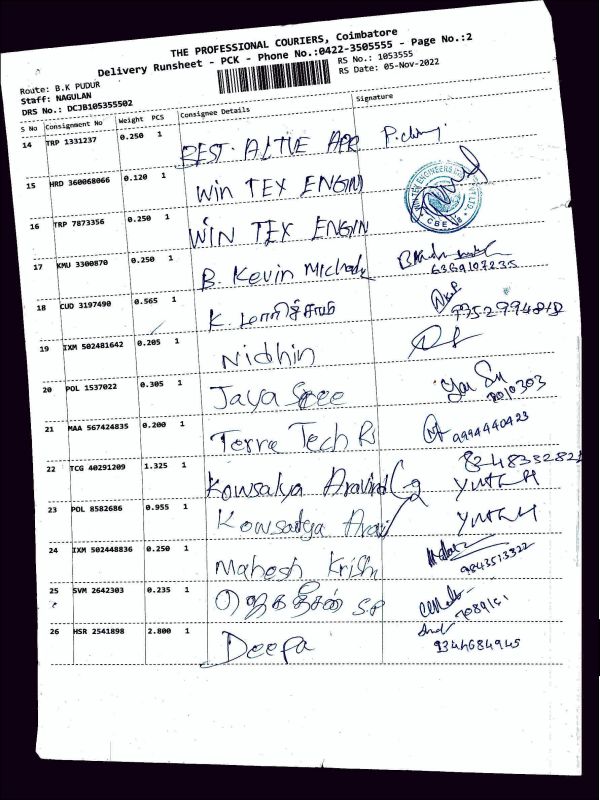 THE PROFESSIONAL COURIERS, Coimbatore
Delivery Runsheet - PCK - Phone No.:0422-3505555 - Page No.:2
Route: B.K PUDUR
RS No.: 1053555
Staff: NAGULAN
RS Date: 05-Nov-2022
DRS No.: DCJB105355502
S No Consignment No Weight PCS Consignee Details Signature
14 TRP 1331237 0.250 1 BEST
15 HRD 360068066 0.120 1 Win TEX ENGIN
16 TRP 7873356 0.250 1 WIN TEX ENGIN
17 KMU 3300870 0.250 1 B. Kevin
18 CUD 3197490 0.565 1 K. 9952994818
19 IXM 502481642 0.205 1 Nidhin
20 POL 1537022 0.305 1 Jaya Sree
21 MAA 567424835 0.200 1 Terra Tech 9994440423
22 TCG 40291209 1.325 1 Kowsalya Aravind
23 POL 8582686 0.955 1 Kowsalya
24 IXM 502448836 0.250 1 Mahesh Krish 9843513322
25 SVM 2642303 0.235 1 ஜெகதீசன் S.P
26 HSR 2541898 2.800 1 Deepa 9344684945